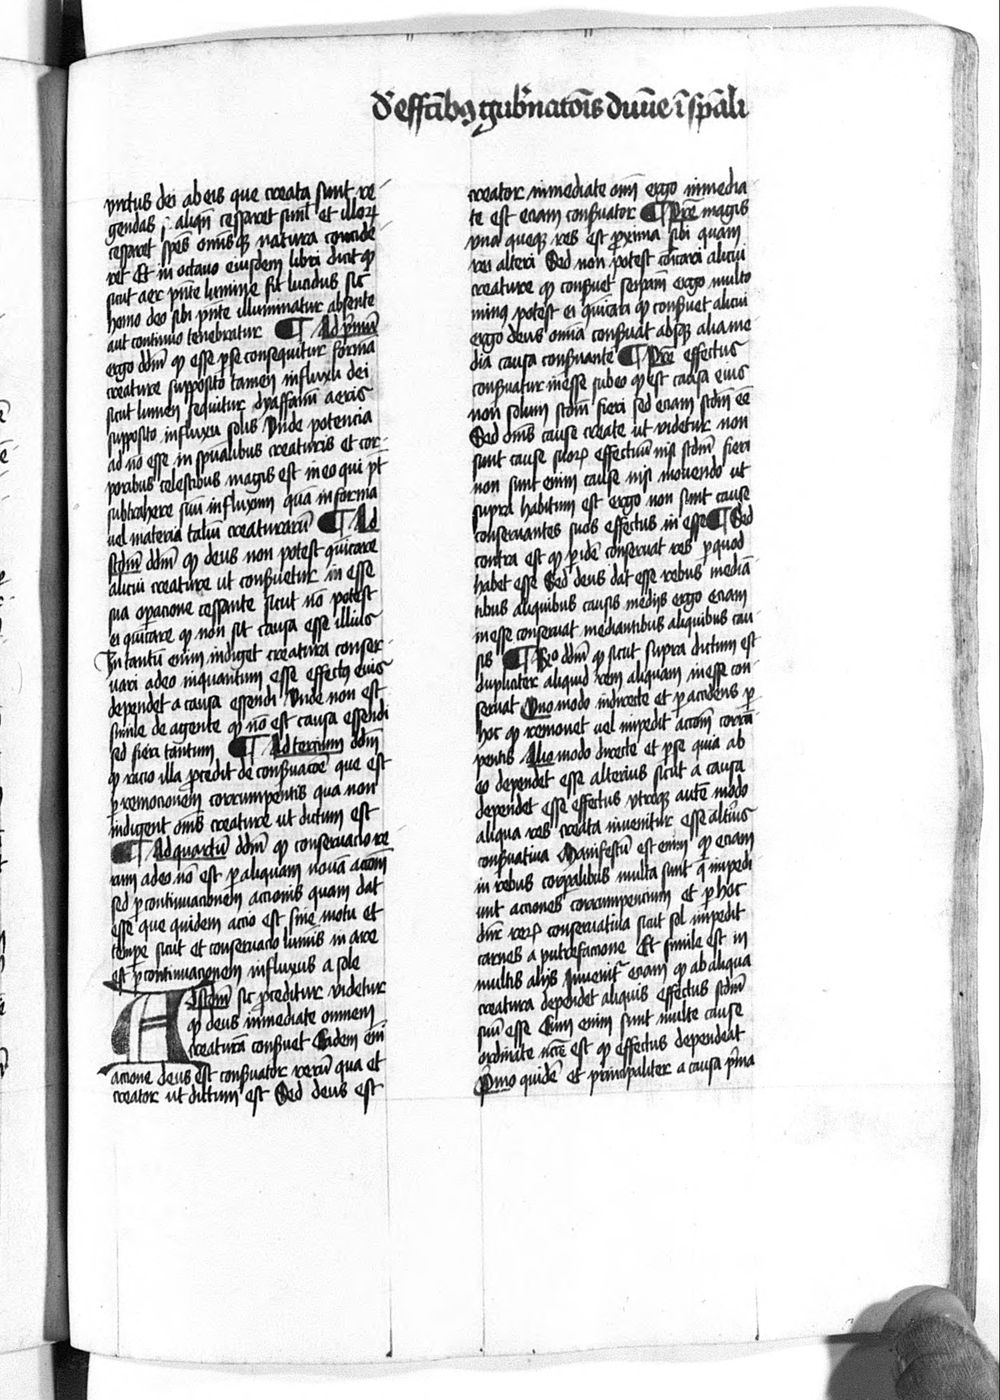 d' effcib9 gub'natois diuie i spali
virtus dei ab eis que creata sunt re
gendas s' aliqn cessaret simul et illorꝝ
cessaret spes omisqꝫ natura concide
ret Et in octauo eiusdem libri dicit ꝙ
sicut aer pnte lumine fit lucidus sic
homo deo sibi pnte illuminatur absente
aut continuo tenebratur ¶ Ad pmum
ergo ddm ꝙ esse ꝑ se consequitur forma
creature supposito tamen influxu dei
sicut lumen sequitur dyaffanum aeris
supposito influxu solis Unde potencia
ad no esse in spualibus creaturis et cor
poribus celestibus magis est in eo qui pt
subtrahere suu influxum qua in forma
uel materia taliu creaturarum ¶ Ad
scdm ddm ꝙ deus non potest quicare
alicui creature ut conseruetur in esse
sua oꝑacione cessante sicut no potest
ei quicare ꝙ non sit causa esse illius
In tantu enim indiget creatura conser
uari a deo inquantum esse effectus eius
dependet a causa essendi Unde non est
simile de agente ꝙ no est causa essendi
sed fieri tantum ¶ Ad tercium ddm
ꝙ racio illa ꝓcedit de conseruacoe que est
ꝑ remocionem corrumpentis qua non
indigent oms creature ut dictum est
¶ Ad quartu ddm ꝙ conseruacio re
rum a deo no est ꝑ aliquam nouam accom
sed ꝑ continuacionem accionis quam dat
esse que quidem actio est sine motu et
tempe sicut et conseruacio luminis in aere
est ꝑ continuacionem influxus a sole
Ad scdm sic ꝓceditur videtur
ꝙ deus inmediate omnem
creatura conseruet Eadem eni
accione deus est conseruator rerum qua et
creator ut dictum est Sed deus est
creator inmediate oim ergo inmedia
te est eciam conseruator ¶ Pre magis
vna queqꝫ res est ꝓxima sibi quam
rei alteri Sed non potest coicari alicui
creature ꝙ conseruet seipsam ergo multo
min9 potest ei quicari ꝙ conseruet alicui
ergo deus omnia conseruat absqꝫ alia me
dia causa conseruante ¶ Pre effectus
conseruatur in esse sub eo ꝙ est causa eius
non solum scdm fieri sed eciam scdm ee
Sed oms cause create ut videtur non
sunt cause suoꝝ effectuum nisi scdm fieri
non sunt enim cause nisi mouendo ut
supra habitum est ergo non sunt cause
conseruantes suos effectus in esse ¶ Sed
contra est ꝙ ꝑ ide conseruat res ꝑ quod
habet esse Sed deus dat esse rebus media
tibus aliquibus causis medijs ergo eciam
in esse conseruat mediantibus aliquibus cau
sis ¶ Rno ddm ꝙ sicut supra dictum est
dupliciter aliquid rem aliquam in esse con
seruat Uno modo indirecte et ꝑ accidens ꝑ
hoc ꝙ remouet uel impedit accom corru
pentis Alio modo directe et ꝑ se quia ab
eo dependet esse alterius sicut a causa
dependet esse effectus vtroqꝫ aute modo
aliqua res creata inuenitur esse alterius
conseruatiua Manifestu est enim ꝙ eciam
in rebus corꝑalibus multa sunt que impedi
unt acciones corrumpencium et ꝑ hoc
dnr reꝝ conseruatiua sicut sal impedit
carnes a putrefactione Et simile est in
multis alijs Inuenitur eciam ꝙ ab aliqua
creatura dependet aliquis effectus scdm
suu esse Cum enim sunt multe cause
ordinate nece est ꝙ effectus dependeat
Primo quide et principaliter a causa pma